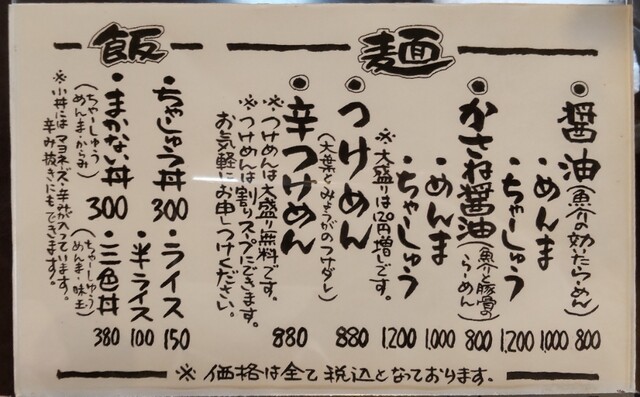 麺
醤油(魚介の効いたらーめん) 800
・めんま 1,000
・ちゃーしゅう 1,200
かさね醤油(魚介と豚骨のらーめん) 800
・めんま 1,000
・ちゃーしゅう 1,200
※大盛りは120円増しです。
つけめん 880
(大葉とみょうがのつけダレ)
辛つけめん 880
※つけめんは大盛り無料です。
※つけめんは割りスープにできます。
お気軽にお申しつけください。
飯
・ちゃーしゅう丼 300
・ライス 150
・まかない丼 300
(ちゃーしゅう めんま・からみ)
・半ライス 100
・三色丼 380
(ちゃーしゅう めんま・味玉)
※小丼にはマヨネーズ・辛みが入っています。
辛み抜きにもできます。
※価格は全て税込となっております。